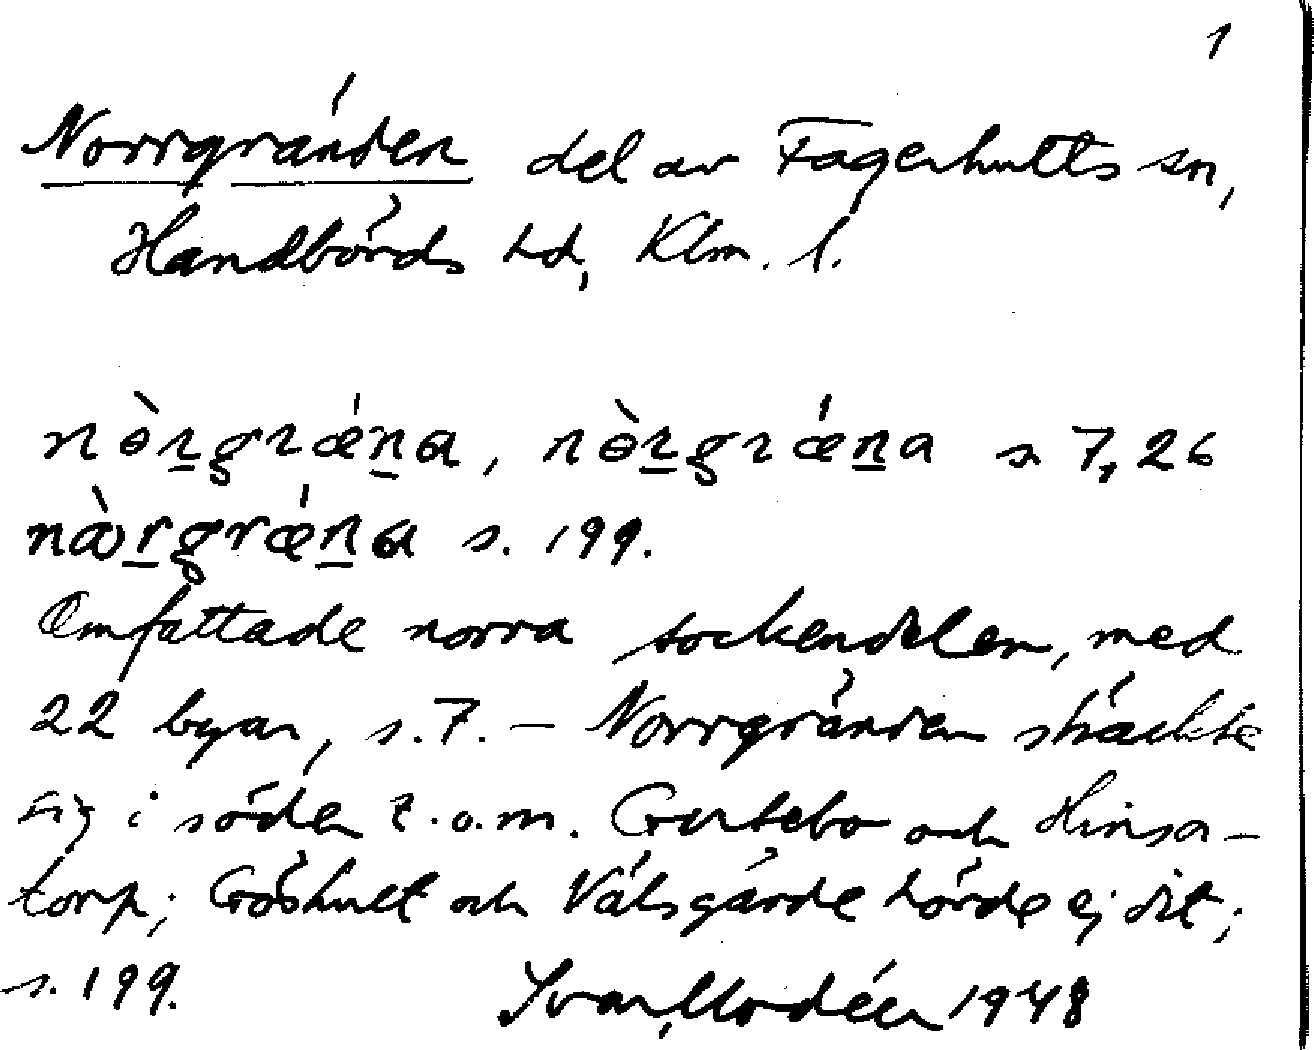 1
Norrgränden del av Fagerhults sn,
Handbörds hd, Klm. l.
nòrgrǽna, nòrgrǽna s 7, 26
nàrgrǽna s. 199.
Omfattade norra sockendelen, med
22 byar, s. 7. – Norrgränden sträckte
sig i söder t.o.m. Gertebo och Hinsa-
torp; Göshult och Välsgärde hörde ej dit;
s. 199. Ivar Modéer 1948